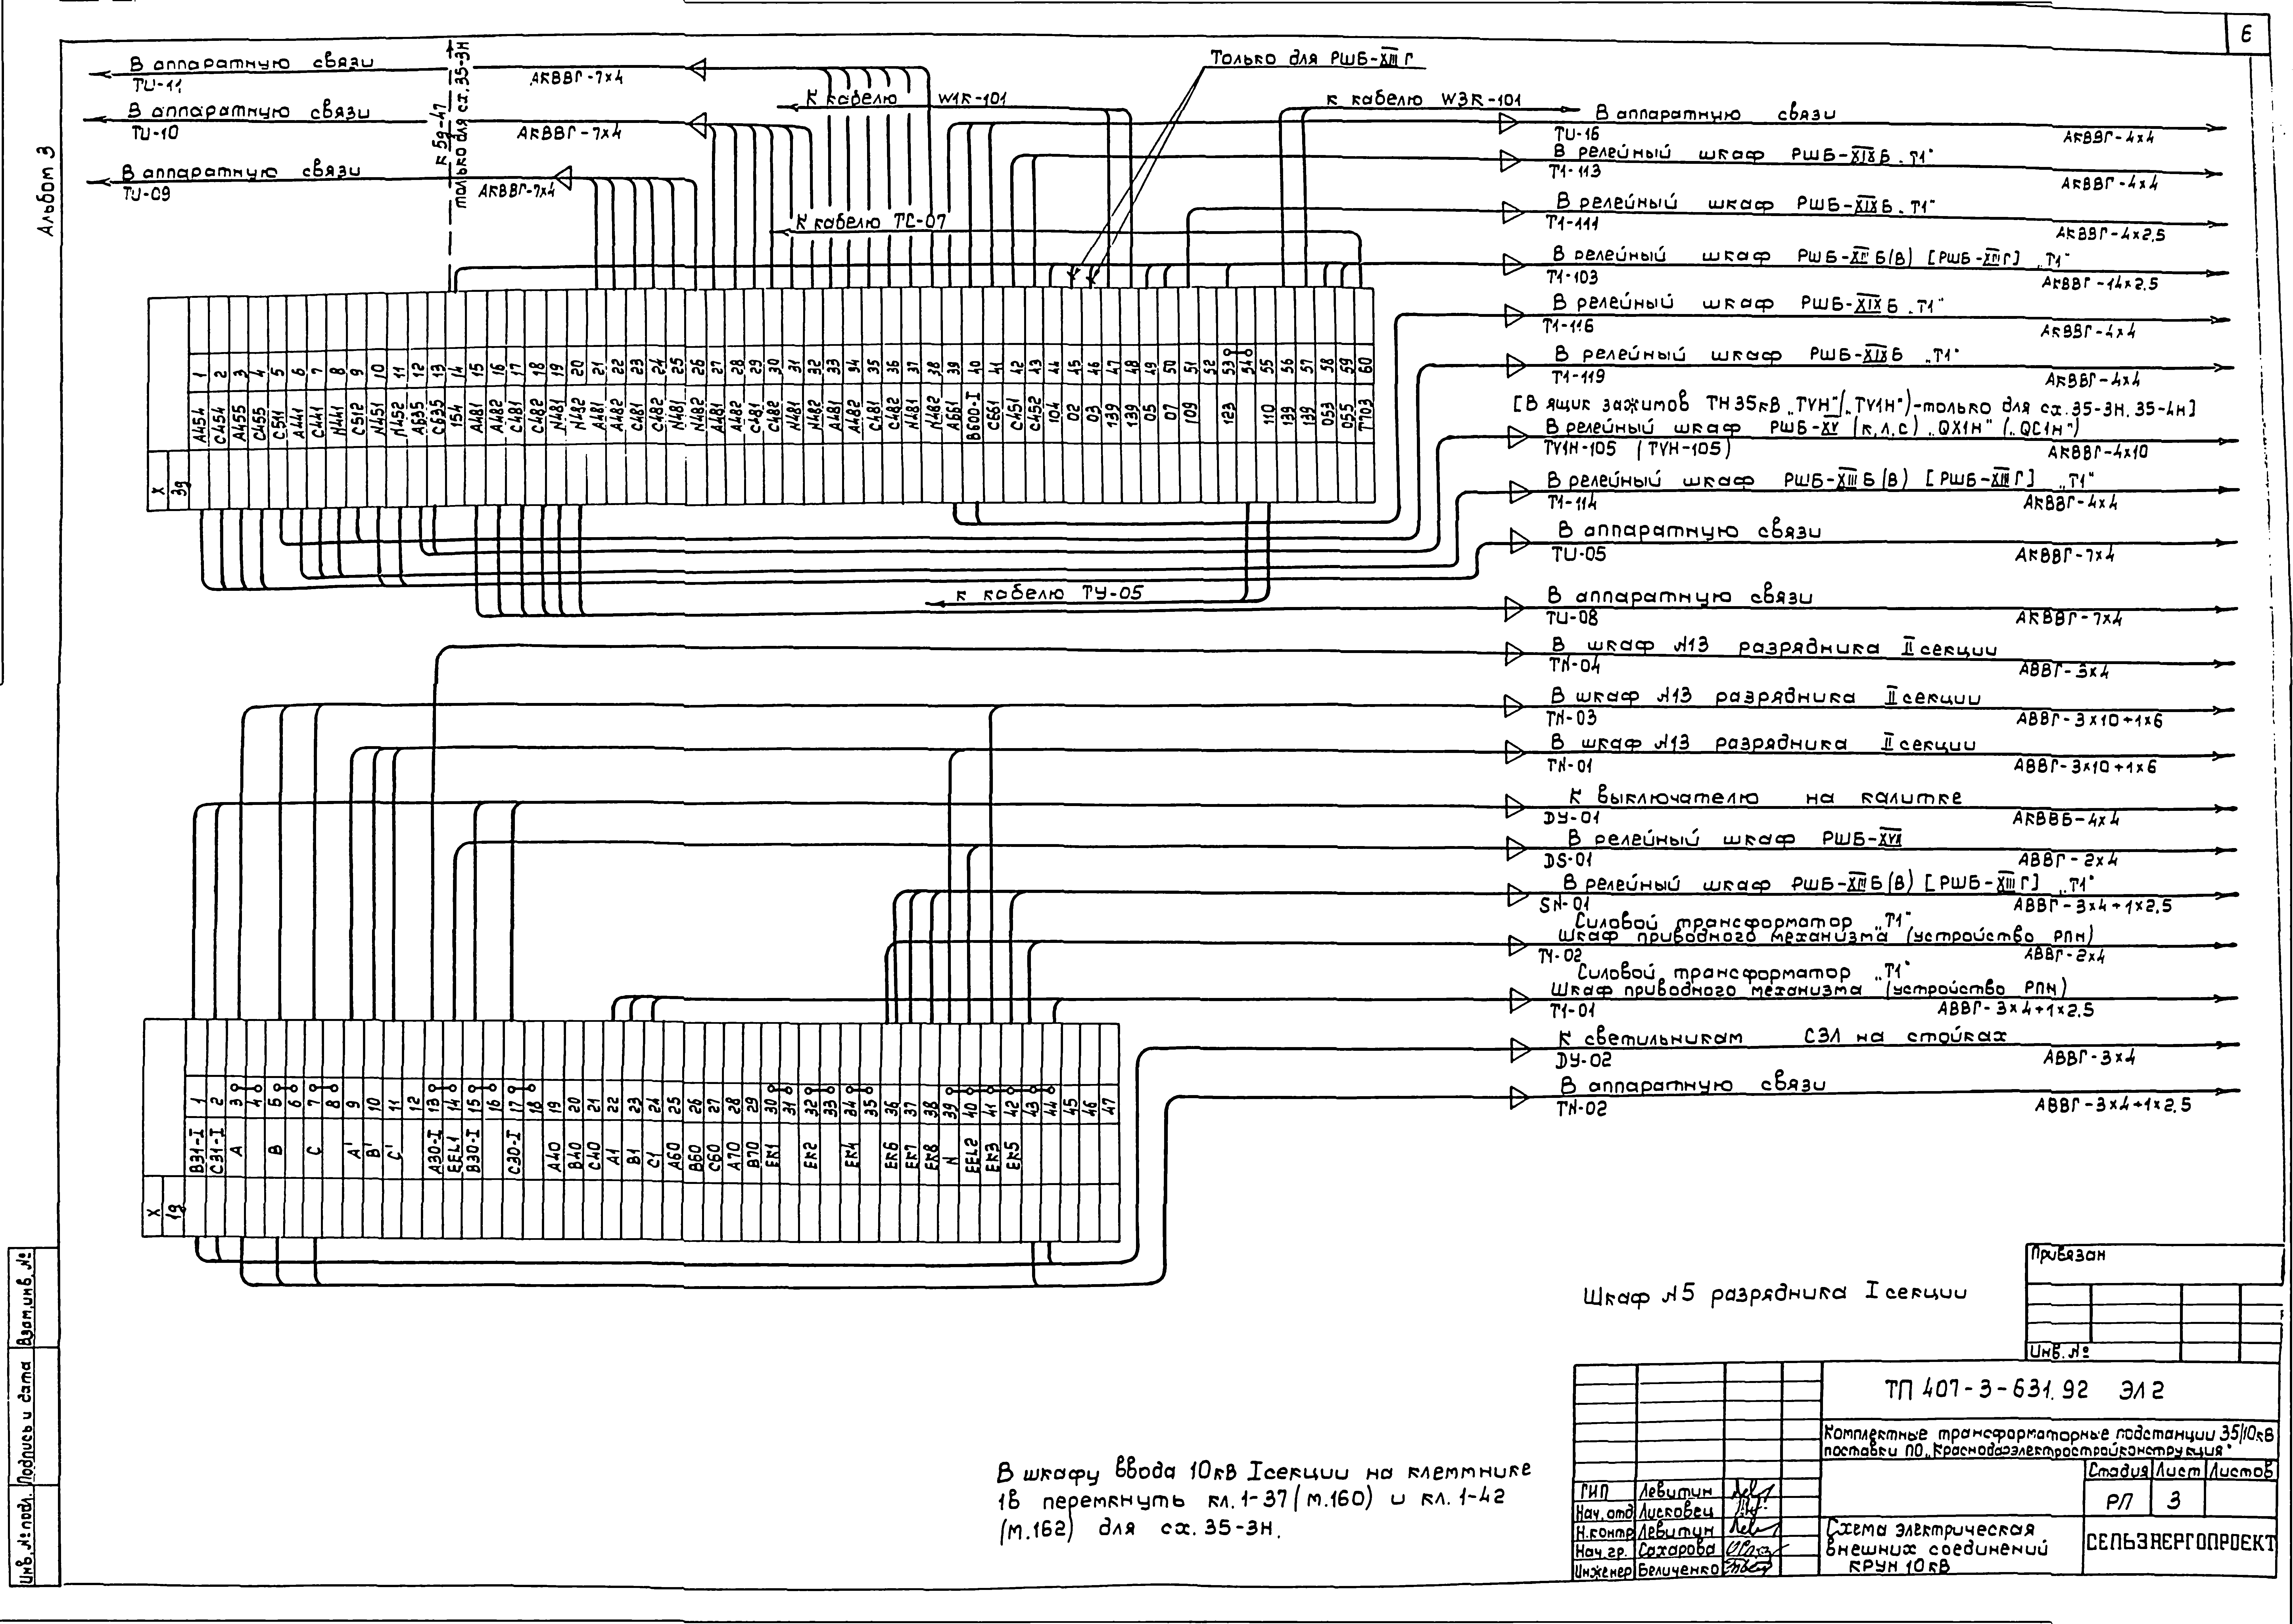 6
Альбом 3
В аппаратную связи
TU-11
АКВВГ-7х4
В аппаратную связи
TU-10
АКВВГ-7х4
В аппаратную связи
TU-09
АКВВГ-7х4
к 5д-47
только для сх. 35-3Н
Только для РШБ-XIII Г
К кабелю W1К-101
к кабелю W3К-101
К кабелю ТС-07
В аппаратную связи
TU-16
АКВВГ-4х4
В релейный шкаф РШБ-XIXБ „Т1"
Т1-113
АКВВГ-4х4
В релейный шкаф РШБ-XIXБ „Т1"
Т1-111
АКВВГ-4х2,5
В релейный шкаф РШБ-XIIIБ(В) [РШБ-XIIIГ] „Т1"
Т1-103
АКВВГ-14х2,5
В релейный шкаф РШБ-XIXБ „Т1"
Т1-116
АКВВГ-4х4
В релейный шкаф РШБ-XIXБ „Т1"
Т1-119
АКВВГ-4х4
[В ящик зажимов ТН35кВ „TVH"(„TV1H")-только для сх.35-3Н, 35-4Н]
В релейный шкаф РШБ-XV (к,л,с) „QX1H" („QC1H")
TV1H-105 (TVH-105)
АКВВГ-4х10
В релейный шкаф РШБ-XIIIБ(В) [РШБ-XIIIГ] „Т1"
Т1-114
АКВВГ-4х4
В аппаратную связи
TU-05
АКВВГ-7х4
к кабелю ТУ-05
В аппаратную связи
TU-08
АКВВГ-7х4
Х 3д
1 2 3 4 5 6 7 8 9 10 11 12 13 14 15 16 17 18 19 20 21 22 23 24 25 26 27 28 29 30 31 32 33 34 35 36 37 38 39 40 41 42 43 44 45 46 47 48 49 50 51 52 53 54 55 56 57 58 59 60
A454 C454 A455 C455 C511 A441 C441 N441 C512 N451 N452 A635 C635 154 A481 A482 C481 C482 N481 N482 A481 A482 C481 C482 N481 N482 A481 A482 C481 C482 N481 N482 A481 A482 C481 C482 N481 N482 A661 B600-I C661 C451 C452 104 02 03 139 139 05 07 109 123 110 139 139 053 055 T703
В шкаф №13 разрядника II секции
TN-04
АВВГ-3х4
В шкаф №13 разрядника II секции
TN-03
АВВГ-3х10+1х6
В шкаф №13 разрядника II секции
TN-01
АВВГ-3х10+1х6
К выключателю на калитке
DУ-01
АКВВБ-4х4
В релейный шкаф РШБ-XVII
DS-01
АВВГ-2х4
В релейный шкаф РШБ-XIIIБ(В) [РШБ-XIIIГ] „Т1"
SN-01
АВВГ-3х4+1х2,5
Силовой трансформатор „Т1"
Шкаф приводного механизма (устройство РПН)
АВВГ-2х4
Силовой трансформатор „Т1"
Шкаф приводного механизма (устройство РПН)
Т1-01
АВВГ-3х4+1х2,5
К светильникам СЗЛ на стойках
DУ-02
АВВГ-3х4
В аппаратную связи
TN-02
АВВГ-3х4+1х2,5
Х 1д
1 2 3 4 5 6 7 8 9 10 11 12 13 14 15 16 17 18 19 20 21 22 23 24 25 26 27 28 29 30 31 32 33 34 35 36 37 38 39 40 41 42 43 44 45 46 47
B31-I C31-I A B C A' B' C' A30-I EEL1 B30-I C30-I A40 B40 C40 A1 B1 C1 A60 B60 C60 A70 B70 EK1 EK2 EK4 EK6 EK7 EK8 N EEL2 EK3 EK5
Шкаф №5 разрядника I секции
В шкафу ввода 10кВ I секции на клеммнике
1в перемкнуть кл. 1-37 (м.160) и кл. 1-42
(м.162) для сх. 35-3Н.
Привязан
Инв. №
ТП 407-3-631.92 ЭЛ2
Комплектные трансформаторные подстанции 35/10кВ
поставки ПО „Краснодарэлектростройконструкция"
Стадия Лист Листов
РП 3
Схема электрическая
внешних соединений
КРУН 10кВ
СЕЛЬЭНЕРГОПРОЕКТ
ГИП Левитин
Нач. отд Лисковец
Н.контр Левитин
Нач. гр. Сахарова
Инженер Величенко
Взам.инв. №
Подпись и дата
Инв. № подл.